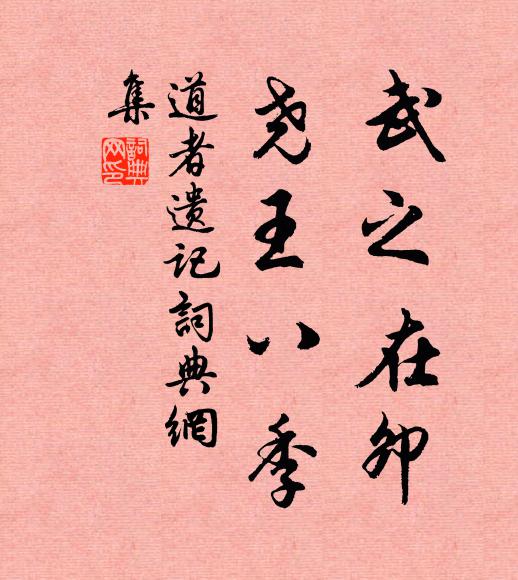 武之在卯
尧王八季
道者遗记詞典網
集
詞典
网印